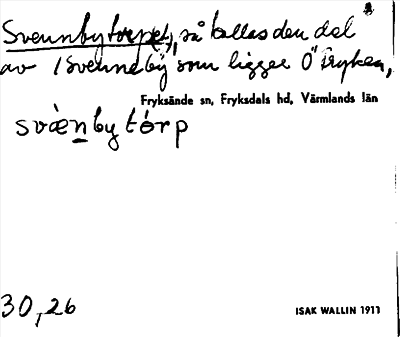 Svennbytorpet, så kallas den del
av /Svenneby som ligger Ö Fryken,
Fryksände sn, Fryksdals hd, Värmlands län
svæ̀nby tórp
30,26
ISAK WALLIN 1911